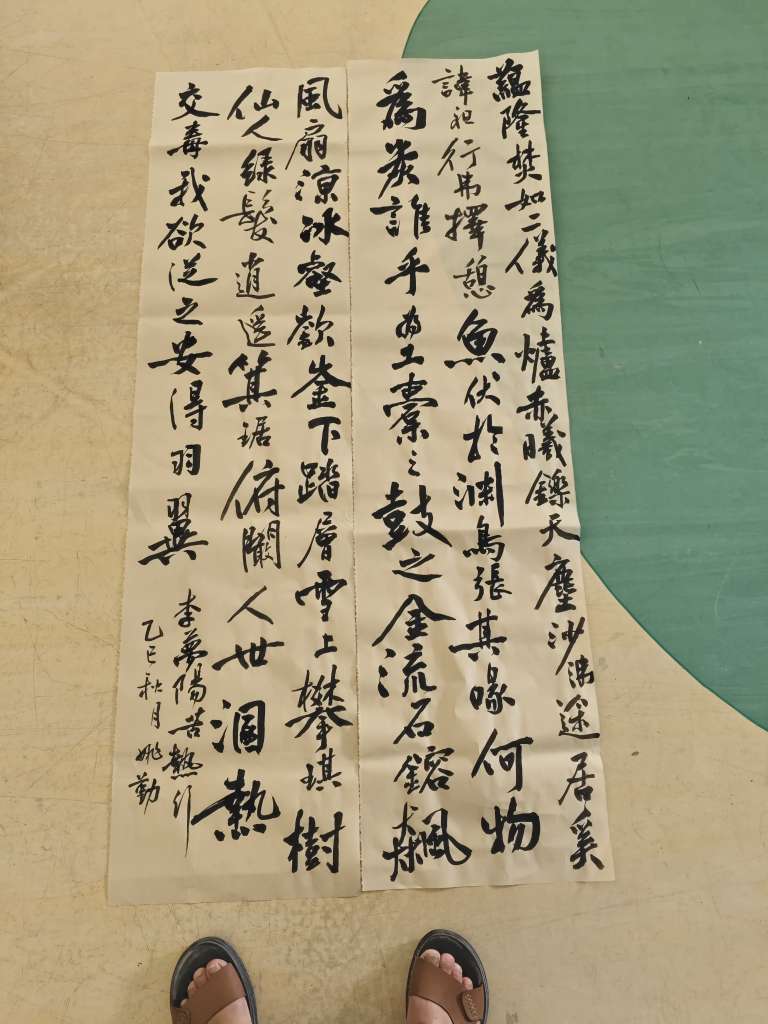 蘊隆焚如二儀爲爐赤曦鑠天塵沙沸途居奚
諱袒行弗擇憩魚伏於淵鳥張其喙何物
爲炭誰乎为工橐之鼓之金流石鎔飆
風扇涼冰壑欹崟下踏層雪上攀琪樹
仙人緑髮逍遥箕踞俯闞人世涸熱
交毒我欲從之安得羽翼
李夢陽苦熱行
乙巳秋月姚勤